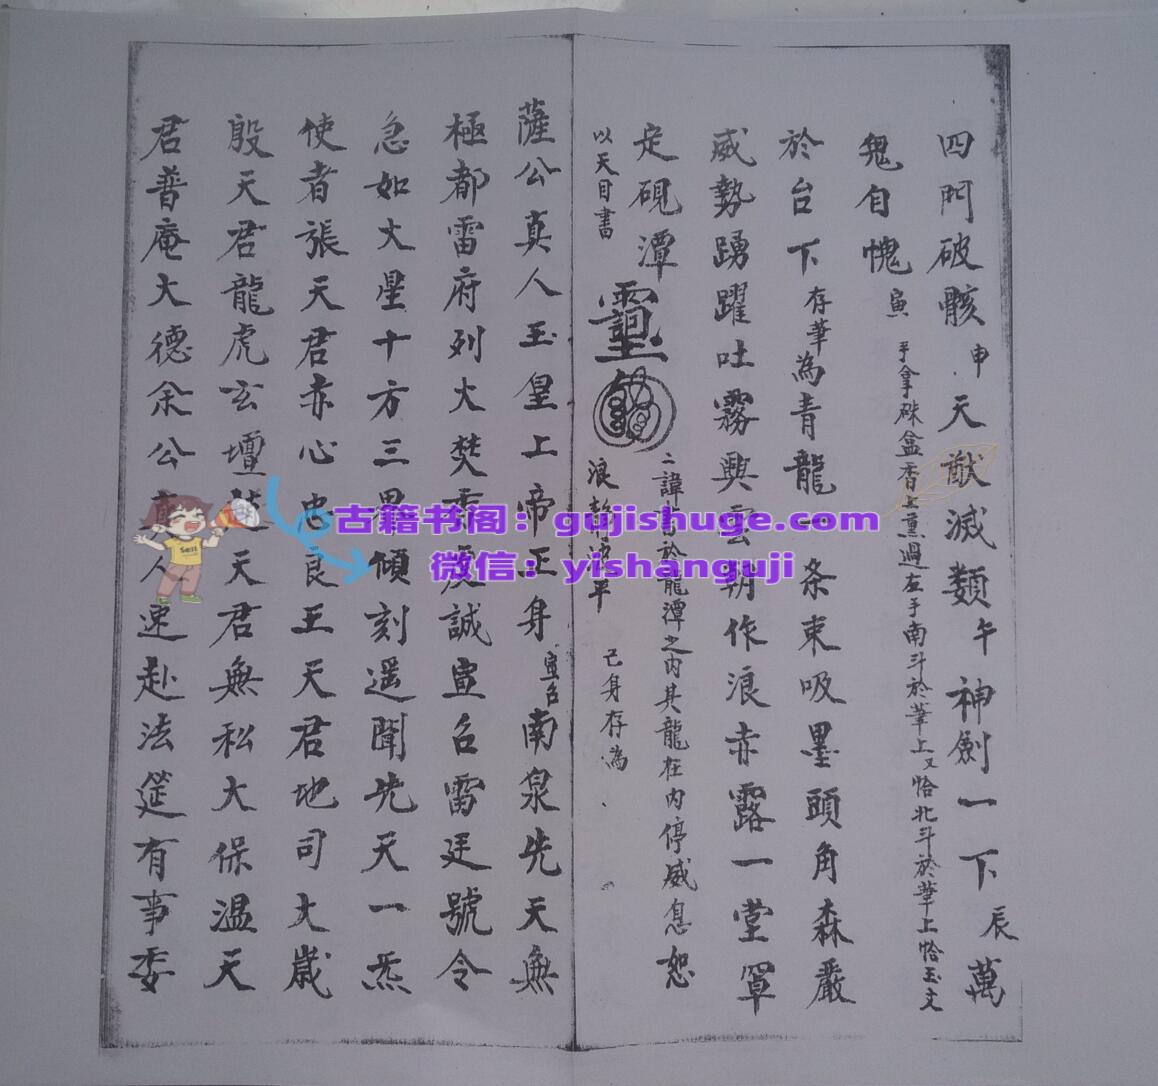 四門破骸申天猷滅類午神劍一下辰萬
鬼自愧寅手拿硃盒香上熏過左手南斗於筆上又恰北斗於筆上恰玉文
於台下存筆為青龍一条東吸墨頭角森嚴
威勢踴躍吐霧興雲朝作浪赤露一堂罩
定硯潭二諱書於龍潭之内其龍在内停威息恕
以天目書浪彭波平己身存為
薩公真人玉皇上帝正身宣名南泉先天無
極都雷府列火焚香虔誠宣召雷廷號令
急如火星十方三界傾刻遥聞先天一炁
使者張天君赤心忠良王天君地司大歲
殷天君龍虎玄壇趙天君無私大保温天
君普庵大德余公真人速赴法筵有事委
古籍书阁：gujishuge.com
微信：yishanguji
Sell